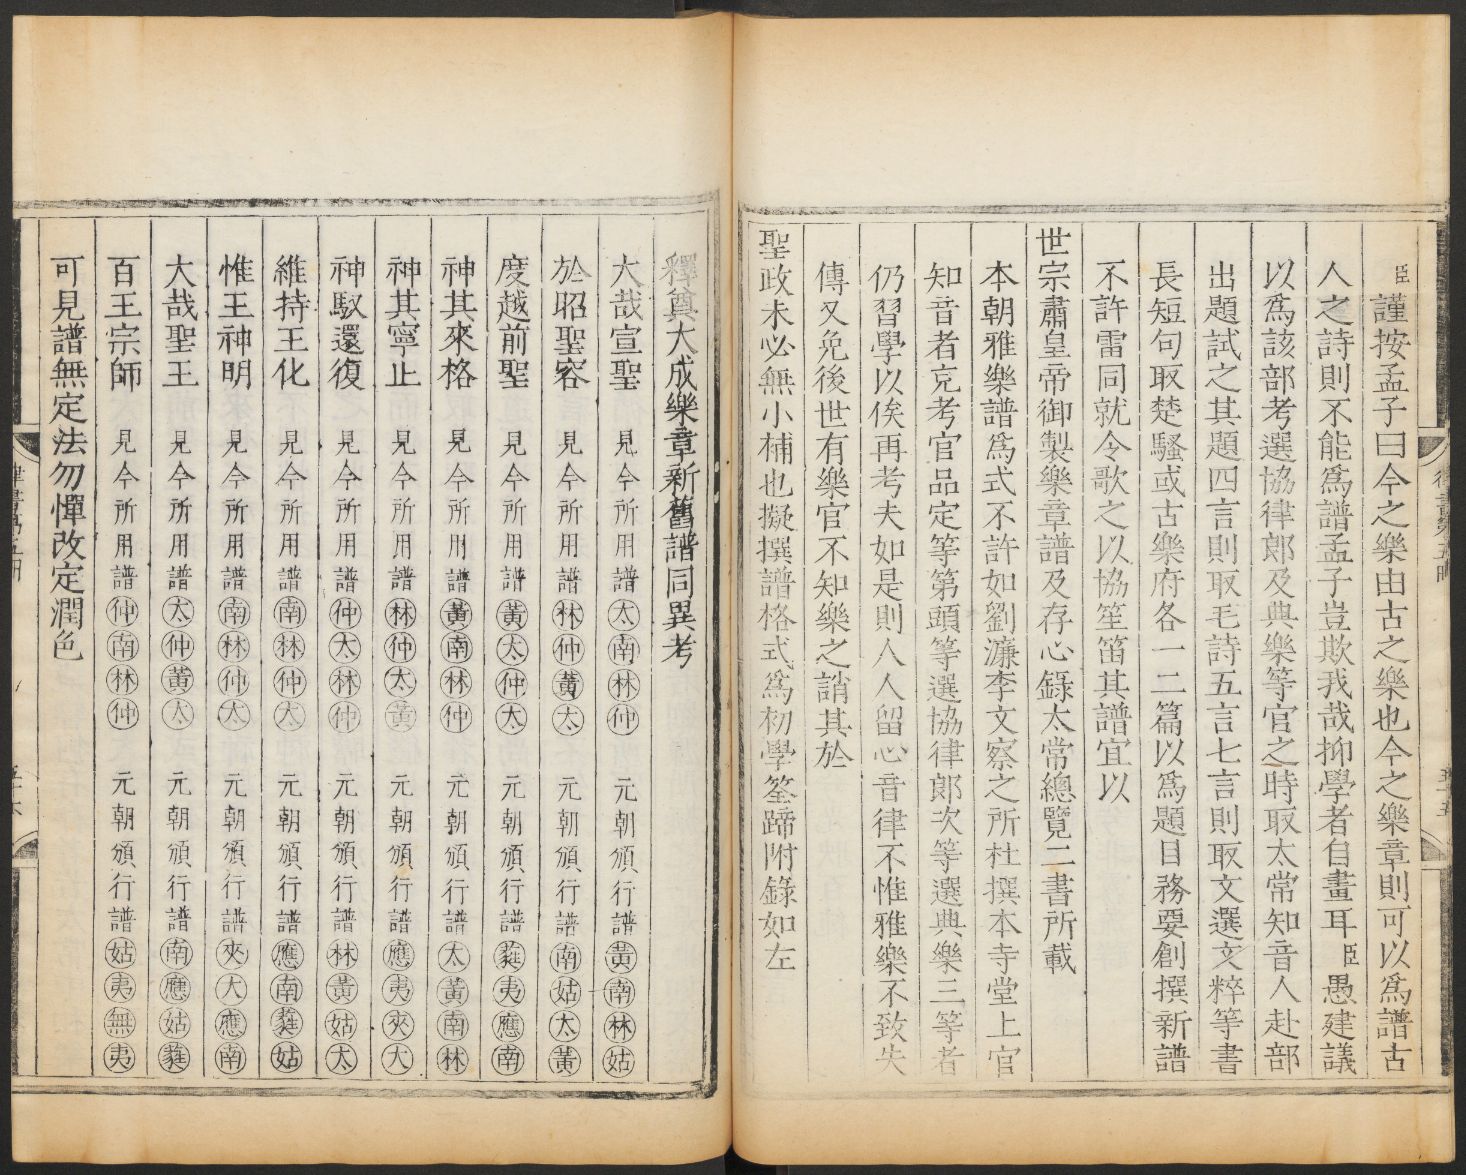 臣謹按孟子曰今之樂由古之樂也今之樂章則可以爲譜古
人之詩則不能爲譜孟子豈欺我哉抑學者自畫耳臣愚建議
以爲該部考選協律郎及典樂等官之時取太常知音人赴部
出題試之其題四言則取毛詩五言七言則取文選文粹等書
長短句取楚騷或古樂府各一二篇以爲題目務要創撰新譜
不許雷同就令歌之以協笙笛其譜宜以
世宗肅皇帝御製樂章譜及存心錄太常總覽二書所載
本朝雅樂譜爲式不許如劉濂李文察之所杜撰本寺堂上官
知音者充考官品定等第頭等選協律郎次等選典樂三等者
仍習學以俟再考夫如是則人人留心音律不惟雅樂不致失
傳又免後世有樂官不知樂之誚其於
聖政未必無小補也擬撰譜格式爲初學筌蹄附錄如左
釋奠大成樂章新舊譜同異考
大哉宣聖 見今所用譜太南林仲 元朝頒行譜黃南林姑
於昭聖容 見今所用譜林仲黃太 元朝頒行譜南姑太黃
度越前聖 見今所用譜黃太仲太 元朝頒行譜蕤夷應南
神其來格 見今所用譜黃南林仲 元朝頒行譜太黃南林
神其寧止 見今所用譜林仲太黃 元朝頒行譜應夷夾大
神馭還復 見今所用譜仲太林仲 元朝頒行譜林黃姑太
維持王化 見今所用譜南林仲太 元朝頒行譜應南蕤姑
惟王神明 見今所用譜南林仲太 元朝頒行譜夾大應南
大哉聖王 見今所用譜太仲黃太 元朝頒行譜南應姑蕤
百王宗師 見今所用譜仲南林仲 元朝頒行譜姑夷無夷
可見譜無定法勿憚改定潤色